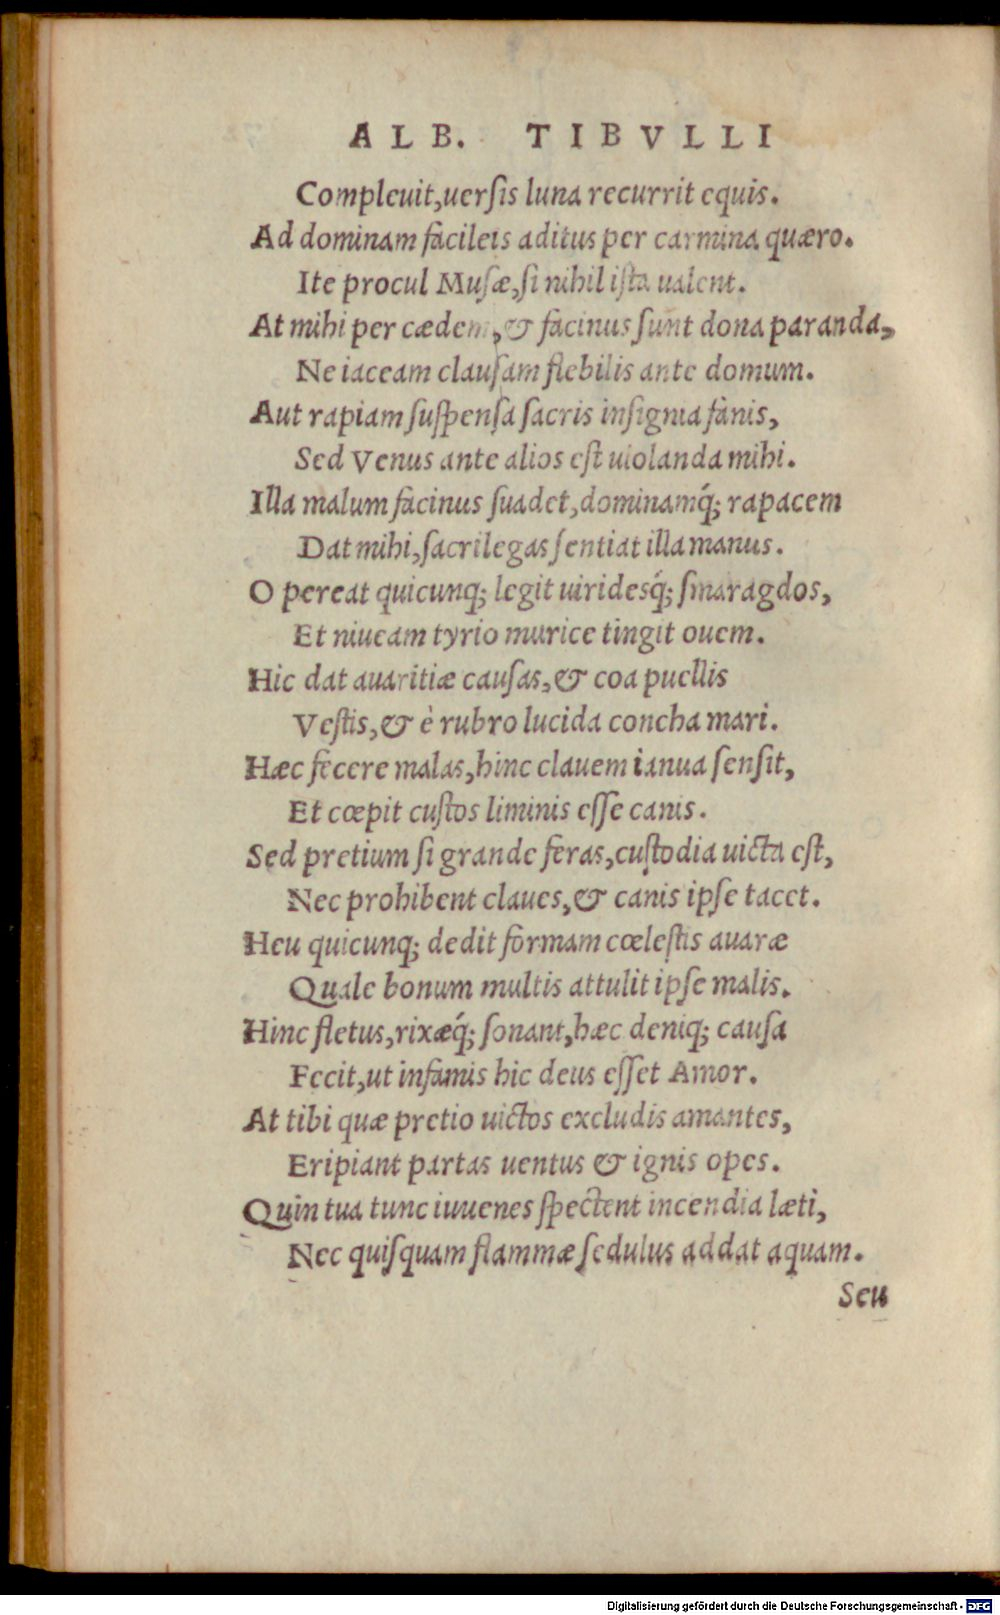 ALB. TIBVLLI
Compleuit,uerſis luna recurrit equis.
Ad dominam facileis aditus per carmina quæro.
Ite procul Muſæ,ſi nihil iſta ualent.
At mihi per cædem,& facinus ſunt dona paranda,
Ne iaceam clauſam flebilis ante domum.
Aut rapiam ſuſpenſa ſacris inſignia fanis,
Sed Venus ante alios eſt uiolanda mihi.
Illa malum facinus ſuadet,dominamq́; rapacem
Dat mihi,ſacrilegas ſentiat illa manus.
O pereat quicunq; legit uiridesq́; ſmaragdos,
Et niueam tyrio murice tingit ouem.
Hic dat auaritiæ cauſas,& coa puellis
Veſtis,& è rubro lucida concha mari.
Hæc fecere malas,hinc clauem ianua ſenſit,
Et cœpit cuſtos liminis eſſe canis.
Sed pretium ſi grande feras,cuſtodia uicta eſt,
Nec prohibent claues,& canis ipſe tacet.
Heu quicunq; dedit formam cœleſtis auaræ
Quale bonum multis attulit ipſe malis.
Hinc fletus,rixæq́; ſonant,hæc deniq; cauſa
Fecit,ut infamis hic deus eſſet Amor.
At tibi quæ pretio uictos excludis amantes,
Eripiant partas uentus & ignis opes.
Quin tua tunc iuuenes ſpectent incendia læti,
Nec quiſquam flammæ ſedulus addat aquam.
Seu
Digitalisierung gefördert durch die Deutsche Forschungsgemeinschaft - DFG